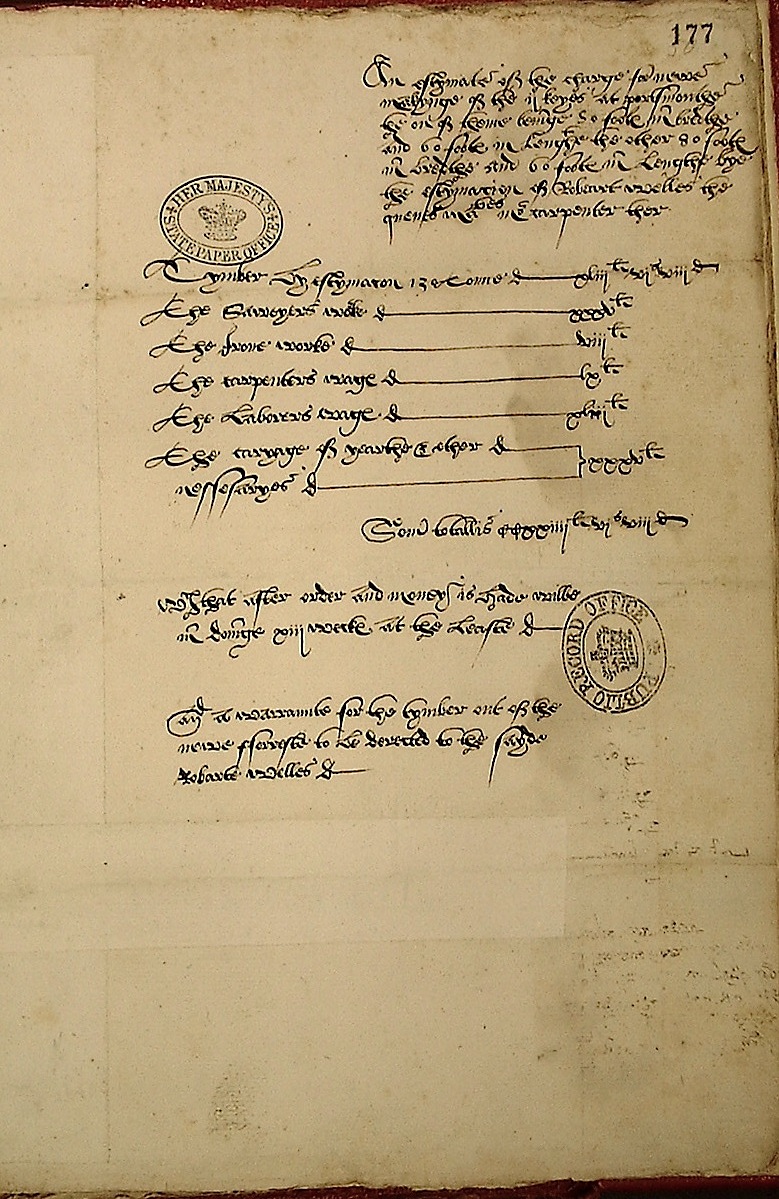 177
An estymate of the charge for newe
makynge of the ij keyes at portsmouthe
the on of theme beinge 80 foote in bredthe
and 60 foote in Lengthe the other 80 foote
in bredthe and 60 foote in Lengthe bye
the estymacion of Robart Welles the
quenes mr carpenter ther
HER MAJESTY'S
STATE PAPER OFFICE
Tymber by estymacon 130 tonne xliij li vj s viij d
The Sawyers worke xxxv li
The Irone worke viij li
The carpenters wage lx li
The Laborers wage xliij li
The caryage of yearthe & other
nessesaryes xxxv li
Som totallis ccxxiiij li vj s viij d
What after order and money is hade wilbe
in doinge xiij weeke at the Leaste
PUBLIC RECORD OFFICE
a warrante for the tymber out of the
newe fforreste to be derected to the sayde
Robarte Welles